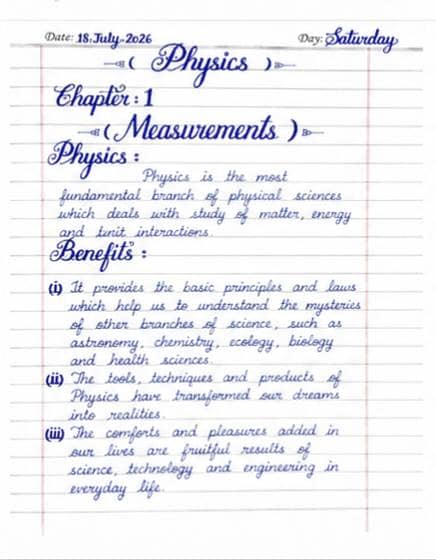 Date: 18.July-2026 Day: Saturday
( Physics )
Chapter : 1
( Measurements )
Physics :
Physics is the most
fundamental branch of physical sciences
which deals with study of matter, energy
and tinit interactions.
Benefits :
(i) It provides the basic principles and laws
which help us to understand the mysteries
of other branches of science, such as
astronomy, chemistry, ecology, biology
and health sciences.
(ii) The tools, techniques and products of
Physics have transformed our dreams
into realities.
(iii) The comforts and pleasures added in
our lives are fruitful results of
science, technology and engineering in
everyday life.